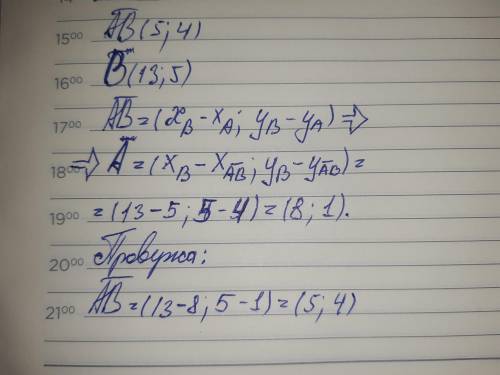 15⁰⁰ A̅B̅(5; 4)
16⁰⁰ B(13; 5)
17⁰⁰ A̅B̅=(x_B-x_A; y_B-y_A) ⇒
18⁰⁰ ⇒ A=(x_B-x_A̅B̅; y_B-y_A̅B̅)=
19⁰⁰ =(13-5; 5-4)=(8; 1).
20⁰⁰ Проверка:
21⁰⁰ A̅B̅=(13-8; 5-1)=(5; 4)